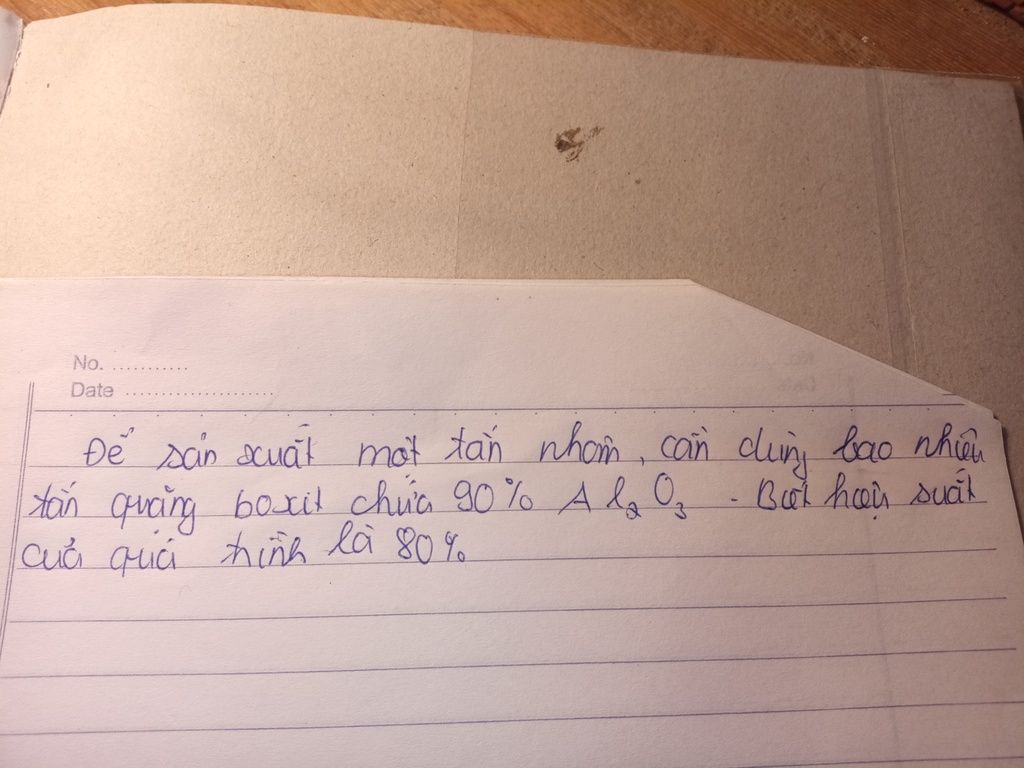 No. ...........
Date .......................
Để sản xuất một tấn nhôm, cần dùng bao nhiêu
tấn quặng boxit chứa 90% Al₂O₃. Biết hiệu suất
của quá trình là 80%